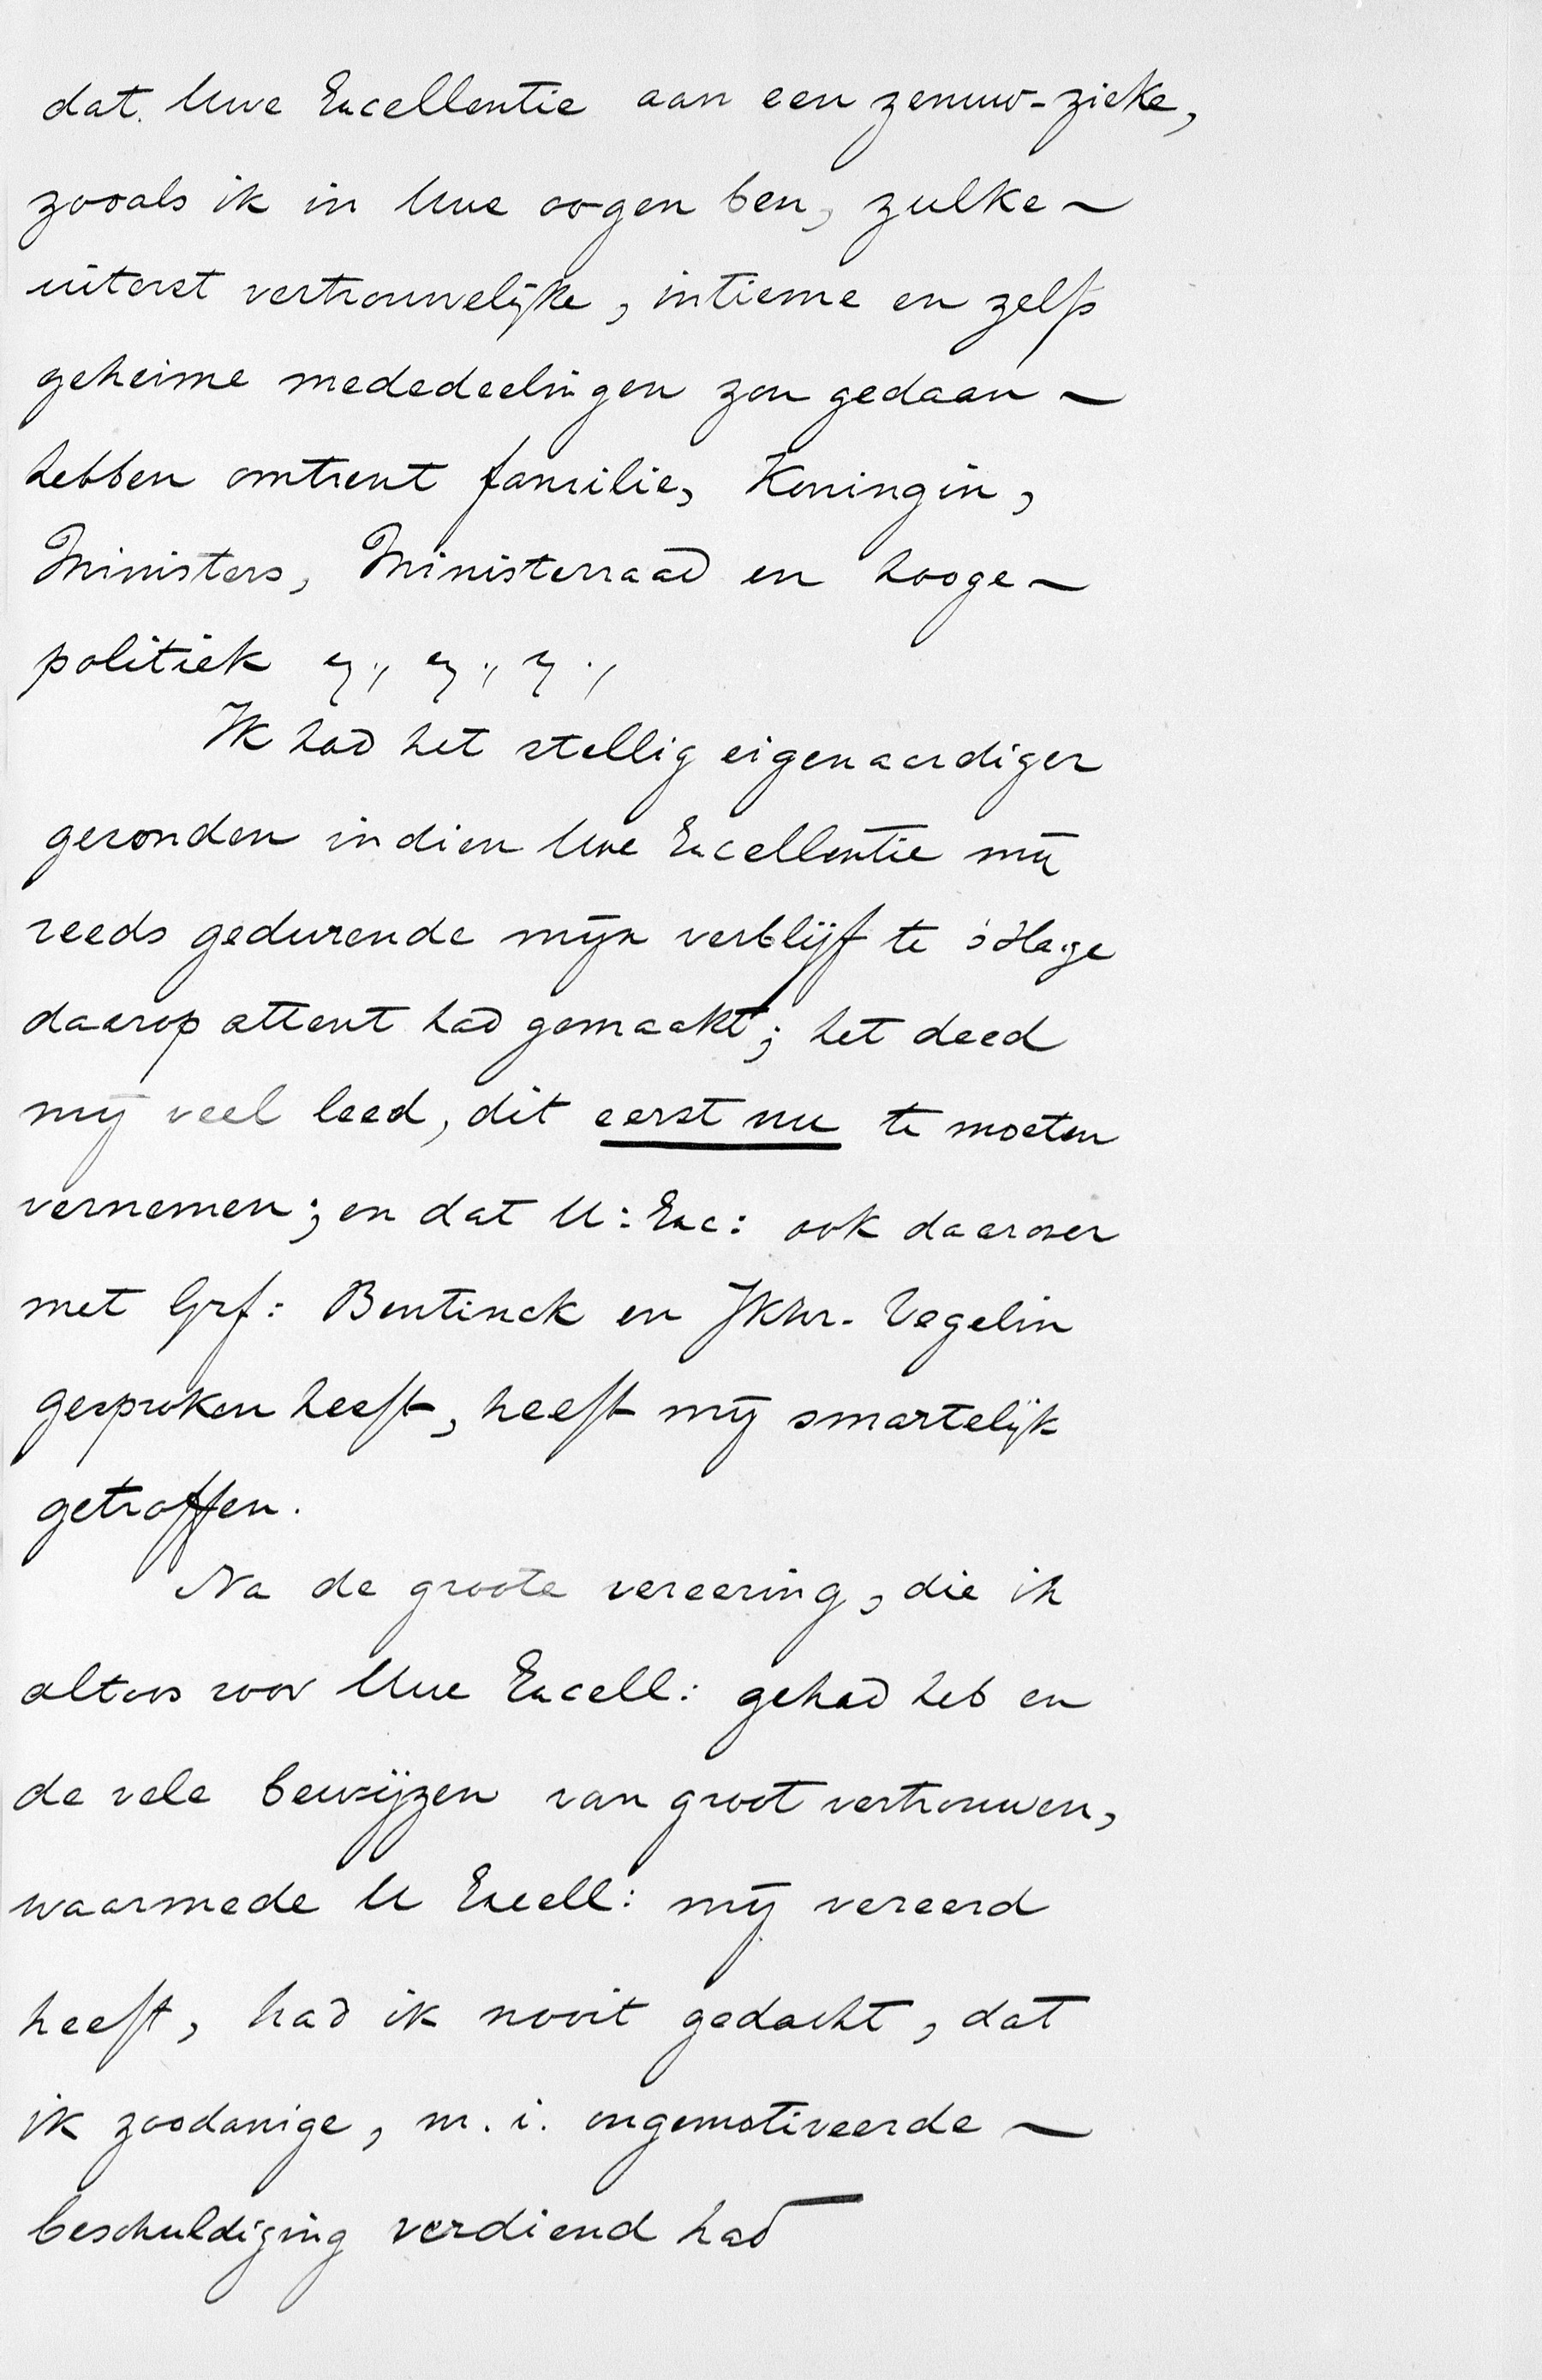 dat Uwe Excellentie aan een zenuw-zieke,
zooals ik in Uwe oogen ben, zulke
uiterst vertrouwelijke, intieme en zelfs
geheime mededeelingen zou gedaan
hebben omtrent familie, Koningin,
Ministers, Ministerraad en hooge
politiek
Ik had het stellig eigenaardiger
gevonden indien Uwe Excellentie mij
reeds gedurende mijn verblijf te 's Hage
daarop attent had gemaakt; het deed
mij veel leed, dit eerst nu te moeten
vernemen; en dat U: Exc: ook daarover
met Grf: Bentinck en Jkhr. Vegelin
gesproken heeft, heeft mij smartelijk
getroffen.
Na de groote vereering, die ik
altoos voor Uwe Excell: gehad heb en
de vele bewijzen van groot vertrouwen,
waarmede U Excell: mij vereerd
heeft, had ik nooit gedacht, dat
ik zoodanige, m. i. ongemotiveerde
beschuldiging verdiend had